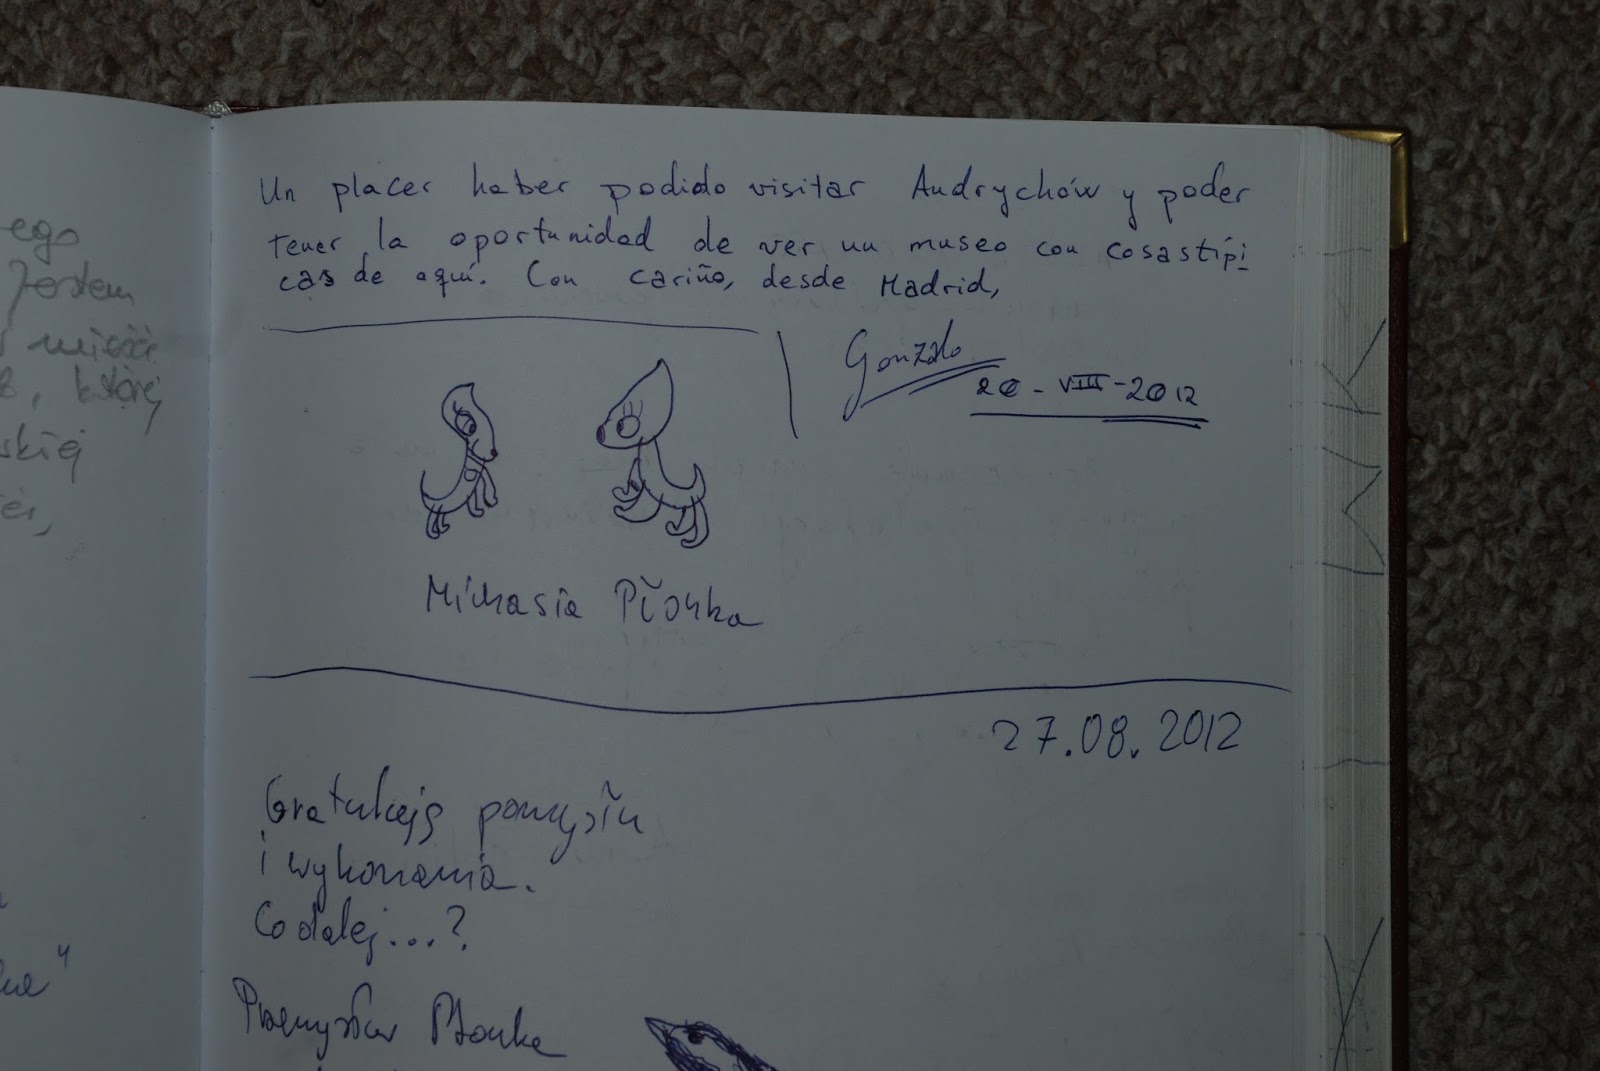 ego
Jestem
, której
skiej
Un placer haber podido visitar Andrychów y poder
tener la oportunidad de ver un museo con cosas típi
cas de aquí. Con cariño, desde Madrid,
Gonzalo
20 - VIII - 2012
Michasia Płonka
27.08.2012
Gratuluję pomysłu
i wykonania.
Co dalej...?
Przemysław Płonka